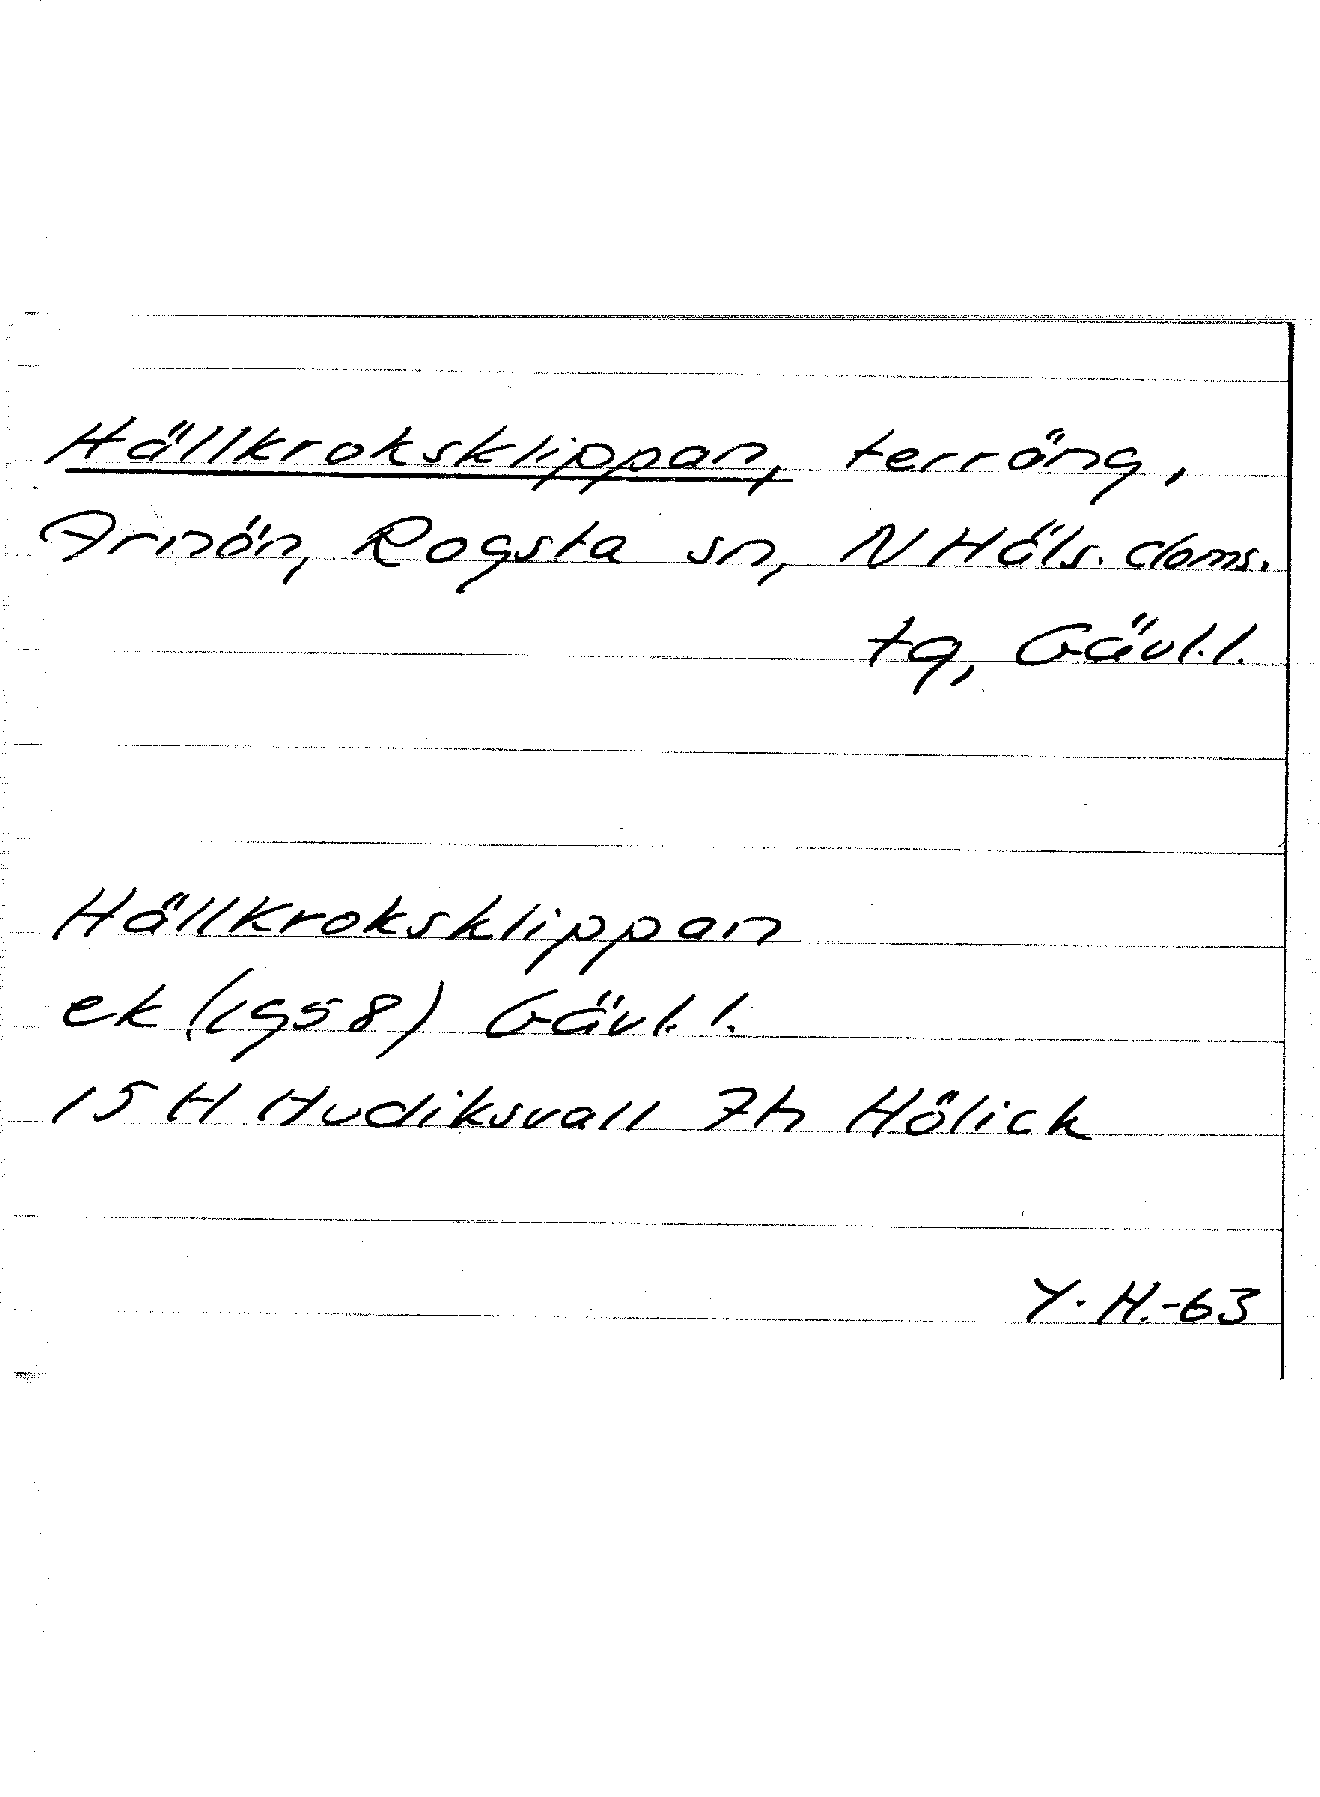 Hällkroksklippan, terräng,
Arnön, Rogsta sn, N Häls. doms.
tg, Gävl.l.
Hällkroksklippan
ek (1958) Gävl.l.
15 H Hudiksvall 7h Hölick
Y. H.-63